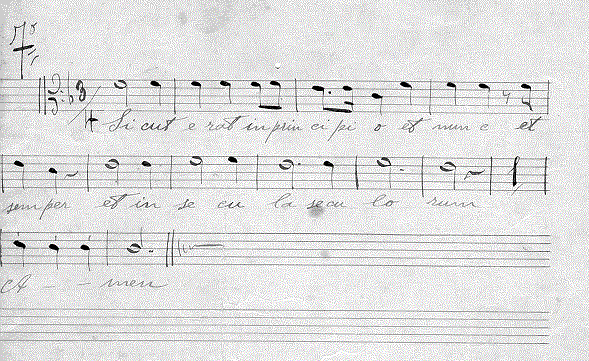 7º
Sicut e rat in prin ci pi o et nunc et
semper et in se cu la secu lo rum
A - - men